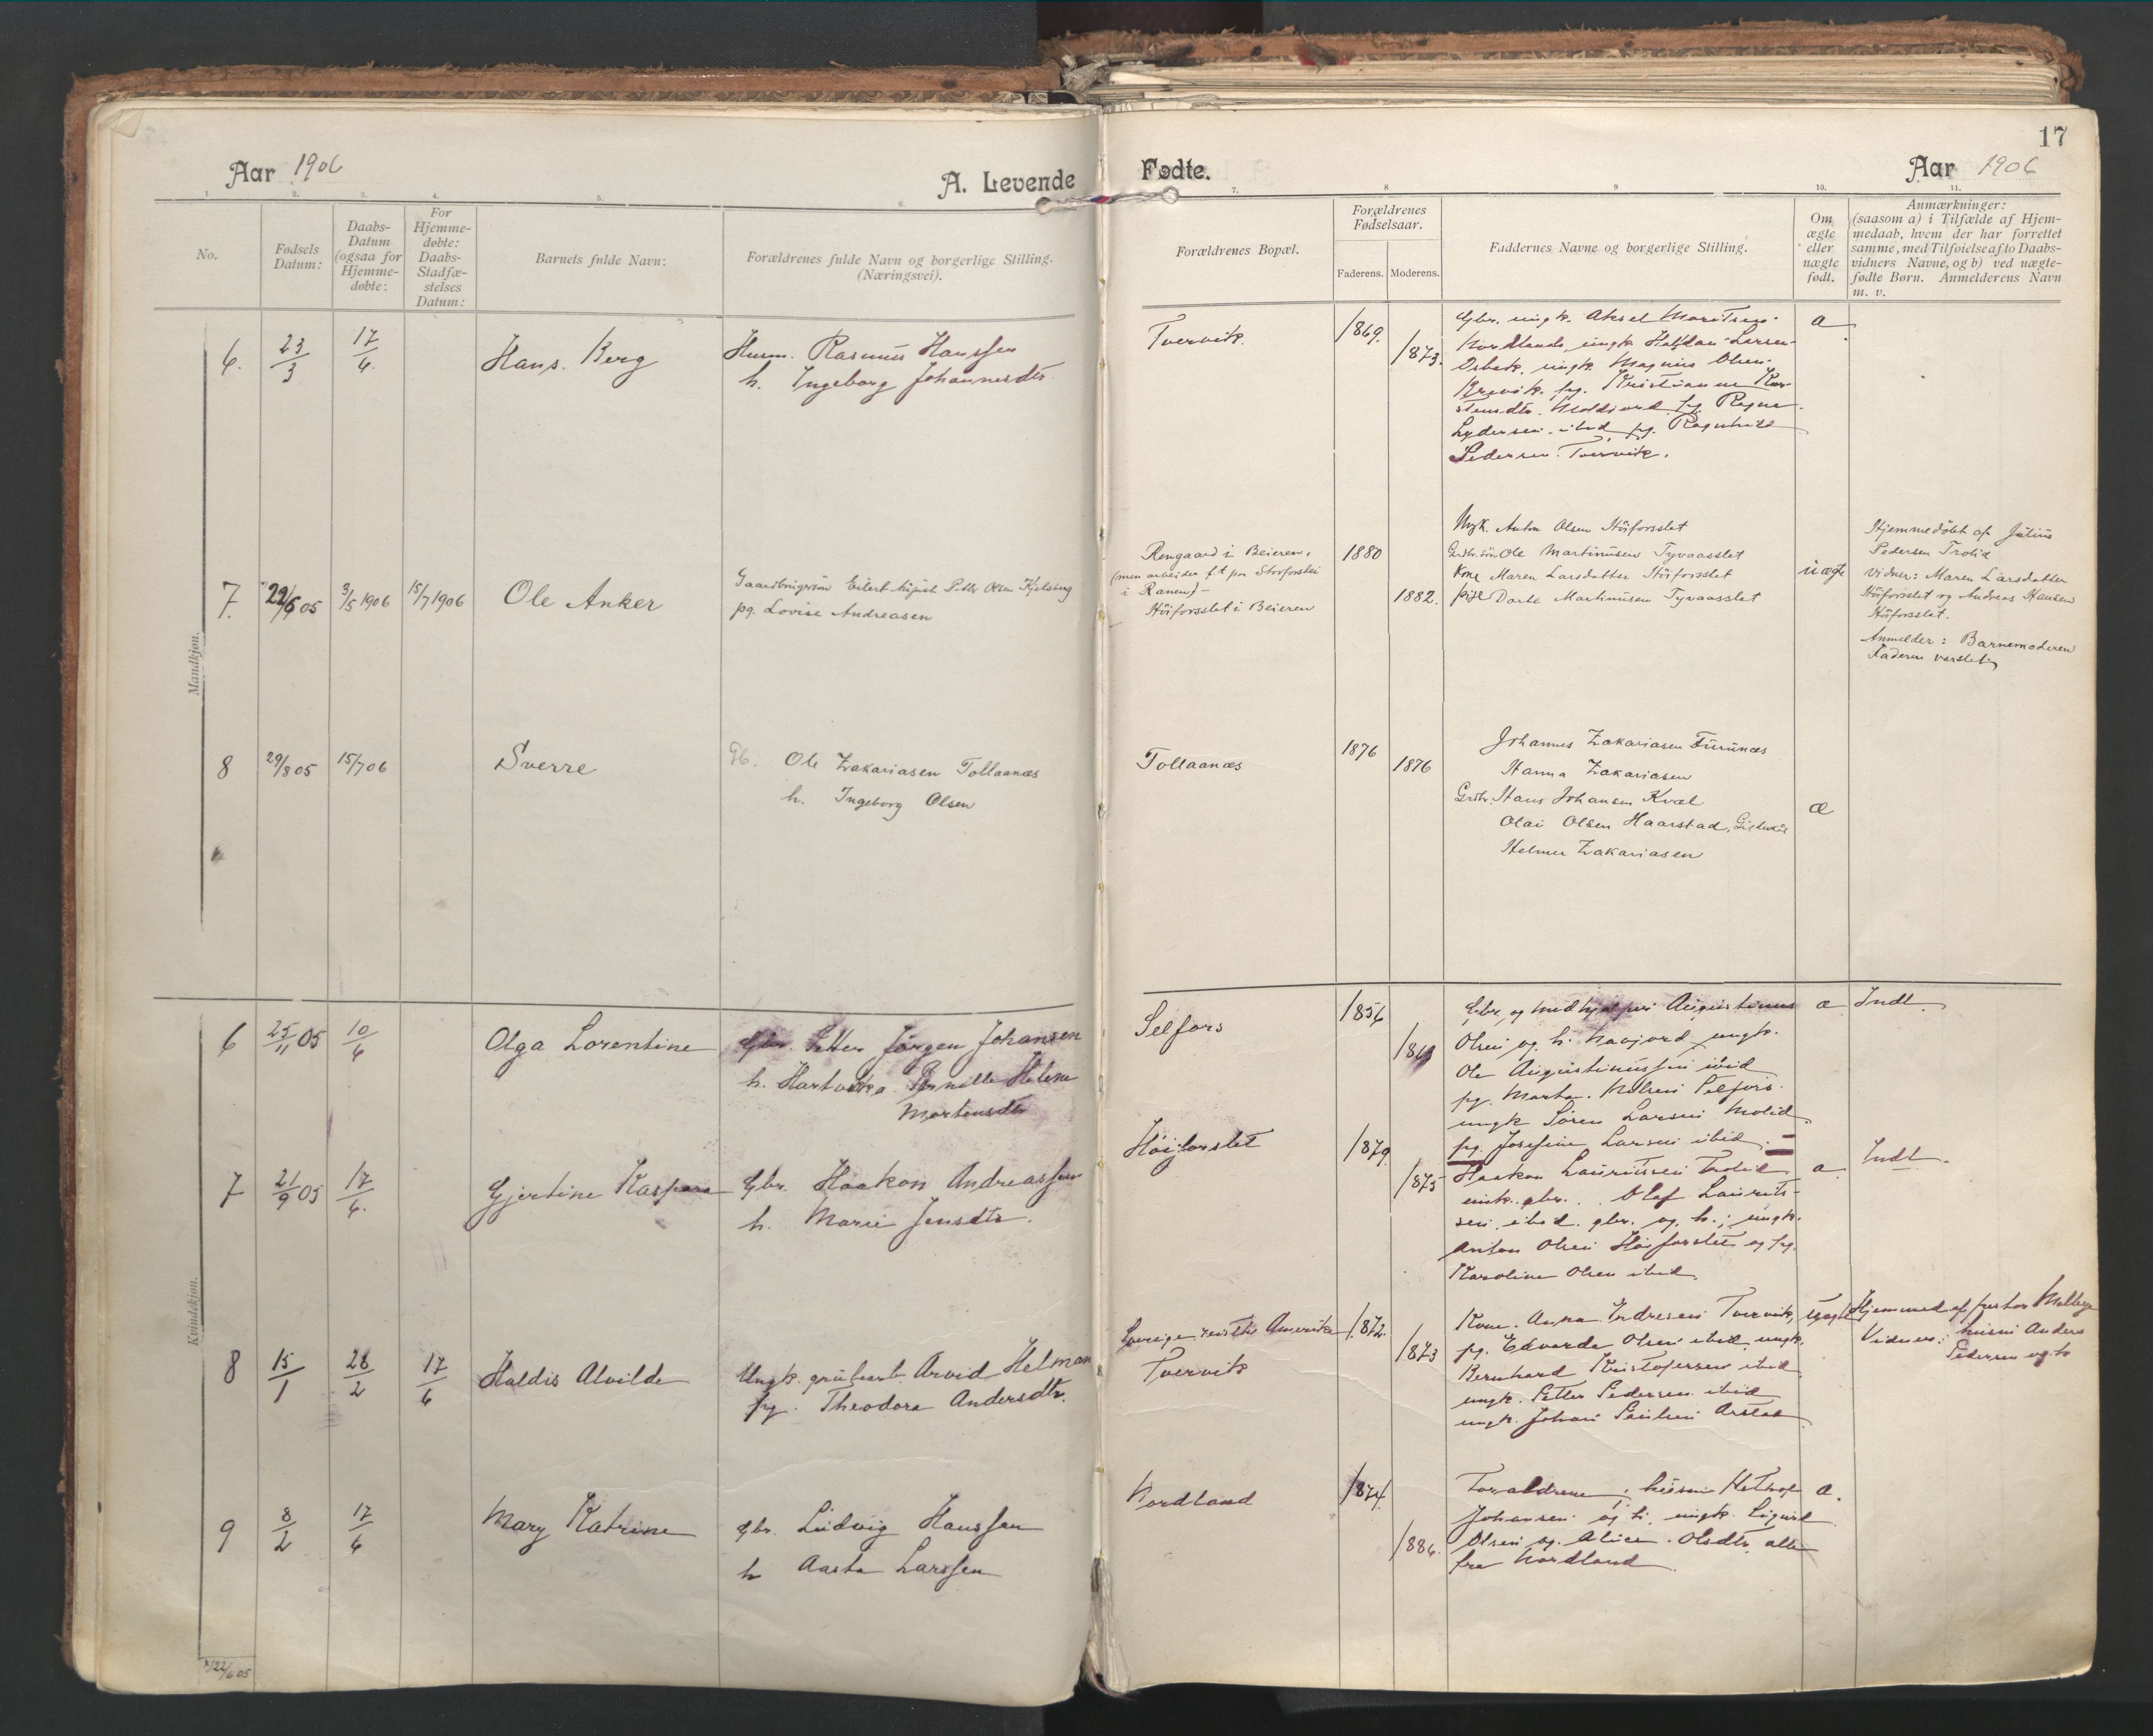 17
Aar 1906
A. Levende
Fødte.
Aar 1906
1. 2. 3. 4. 5. 6. 7. 8 9 10. 11.
No.
Fødsels
Datum:
Daabs-
Datum
(ogsaa for
Hjemme-
døbte:
For
Hjemme-
døbte:
Daabs-
Stadfæ-
stelses
Datum:
Barnets fulde Navn:
Forældrenes fulde Navn og borgerlige Stilling.
(Næringsvei).
Forældrenes Bopæl.
Forældrenes
Fødselsaar.
Faderens. Moderens.
Faddernes Navne og borgerlige Stilling.
Om
ægte
eller
uægte
født.
Anmærkninger:
(saasom a) i Tilfælde af Hjem-
medaab, hvem der har forrettet
samme, med Tilføielse af to Daabs-
vidners Navne, og b) ved uægte-
fødte Børn. Anmelderens Navn
m. v.
Mandkjøn.
6. 23/3 17/6. Hans. Berg
Husm. Rasmus Hanssen
h. Ingeborg Johannesdtr.
Tvervik. 1869. 1873.
Gbr. ungk. Aksel Moritsen
Nordland, ungk. Halfdan Larsen
Osbak. ungk. Magnus Olsen
Brevik. pg. Kristianne
Moldjord pg. Ragna
Lydersen ibid pg. Ragnhild
Pedersen. Tvervik.
æ
7. 22/6 05 3/5 1906 15/7 1906 Ole Anker
Gaardbrugersøn Eilert August Petter Olsen Kjelsberg
pg. Lovise Andreasen
Rengaard i Beieren,
(men arbeider f.t. paa Storforshei
i Ranen) -
Høiforsslet i Beieren
1880 1882.
Ungk. Anton Olsen Høiforsslet
Grdbr. søn Ole Martinusen Tyvaasslet
Kone Maren Larsdatter Høiforsslet
pige Dorte Martinusen Tyvaasslet
uægte
Hjemmedøbt af Julius
Pedersen Trolid
Vidner: Maren Larsdatter
Høiforsslet og Andreas Hansen
Høiforsslet.
Anmelder: Barnemoderen
Faderen
8 29/8 05 15/7 06 Sverre
Gb. Ole Zakariasen Tollaanæs
h. Ingeborg Olsen
Tollaanæs 1876 1876
Johannes Zakariasen Furunæs
Hanna Zakariasen
Grdbr. Hans Johansen Kvæl
Olai Olsen Haarstad,
Helmer Zakariasen
æ
Kvindekjøn.
6 25/11 05 10/6 Olga Lorentine
Gbr. Petter Jørgen Johansen
h. Hartvikka Pernille Helene
Mortensdtr
Selfors 1856
Gbr. og medhjælper Augustinus
Olsen og h. Navjord ungk.
Ole Augustinussen ibid
pg. Marta Selfors.
ungk Søren Larsen Molid
pg. Josefine Larsen ibid.
æ Indl.
7 21/9 05 17/6. Gjertine Kaspara
Gbr. Haakon Andreassen
h. Marie Jensdtr.
Høiforslet 1879 1875
Haakon Lauritsen Trolid
enk. gbr. Olaf Laurit-
sen ibid. gbr. og h.; ungk.
Anton Olsen Høiforslet og pg.
Karoline Olsen ibid
æ Indl.
8 15/1 28/2 17/6 Haldis Alvilde
Ungk. grubearb. Arvid Helman
pg. Theodora Andersdtr.
Sverige, reist til Amerika
Tvervik
1872. 1873
Kone. Anna Andresen Tvervik,
pg. Edvarda Olsen ibid. ungk.
Bernhard Kristofersen ibid
ungk. Petter Pedersen ibid
ungk. Johan Paulsen Arstad
uægte
Hjemmed. af
Vidner: husm Anders
Pedersen og h
9 8/2 17/6 Mary Katrine
Gbr. Ludvig Hanssen
h Aasta Larssen
Nordland 1874 1886.
Forældrene, husm
Johansen og h. ungk. Sigurd
Olsen og Alice Olsdtr. alle
fra Nordland
æ.
22/6 05